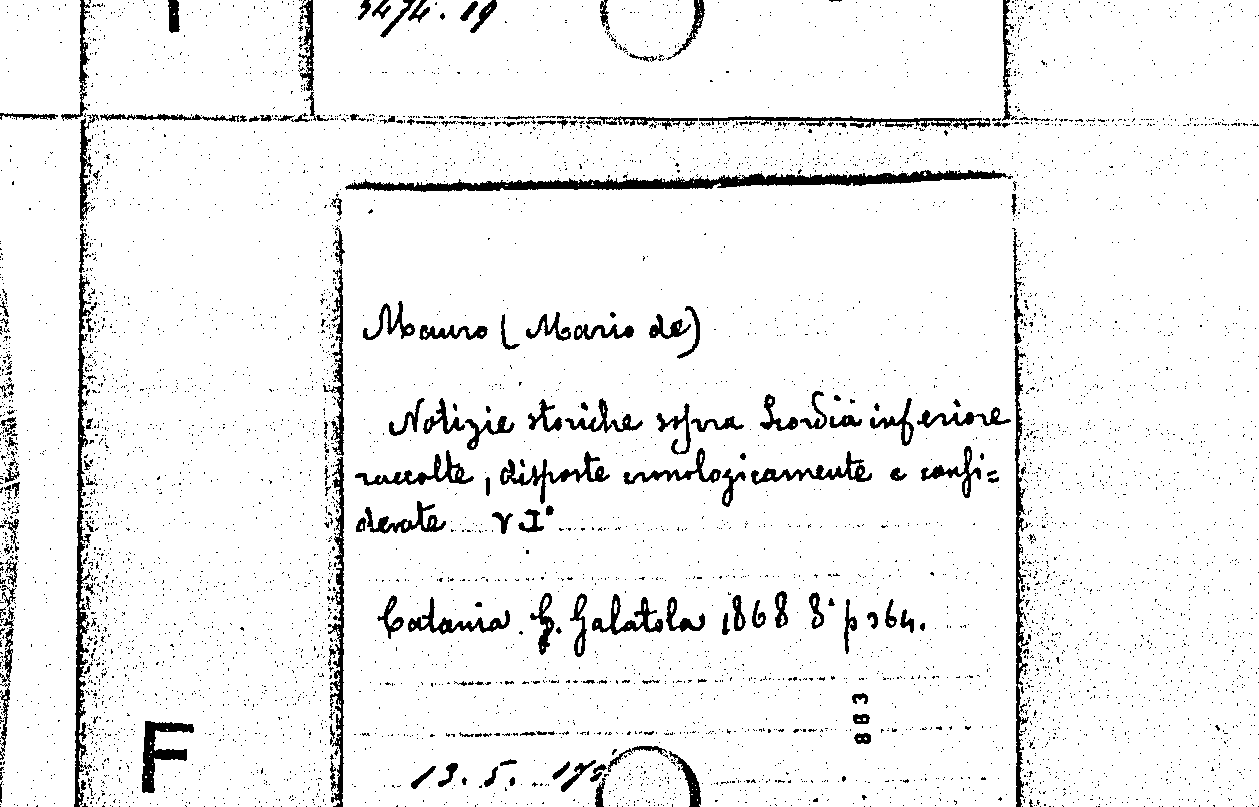 3474.19
Mauro (Mario de)
Notizie storiche sopra Scordia inferiore
raccolte, disposte cronologicamente e consi=
derate v I°
Catania. G. Galatola 1868 8° p 264.
883
F
13.5.